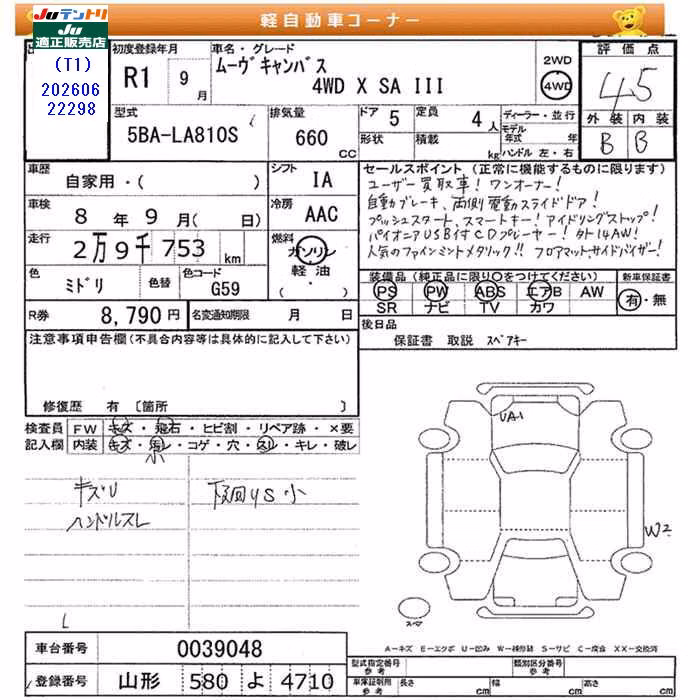 Juテントリ
Ju
適正販売店
軽自動車コーナー
(T1)
202606
22298
初度登録年月
R1 9月
車名・グレード
ムーヴキャンバス
4WD X SA III
2WD
4WD
評価点
4.5
外装 内装
B B
型式
5BA-LA810S
排気量
660 CC
ドア 5
形状
定員 4人
積載 kg
ディーラー・並行
モデル年式 年
ハンドル 左・右
車歴
自家用・( )
シフト
IA
車検
8年 9月( 日)
冷房
AAC
走行
2万9千753 km
燃料
ガソリン
軽油
( ・ )
色
ミドリ
色替
色コード
G59
R券
8,790円
名変通知期限 月 日
セールスポイント (正常に機能するものに限ります)
ユーザー買取車! ワンオーナー!
自動ブレーキ、両側電動スライドドア!
プッシュスタート、スマートキー! アイドリングストップ!
パイオニアUSB付CDプレーヤー! 外14AW!
人気のファインミントメタリック!! フロアマット、サイドバイザー!
装備品(純正品に限り○をつけてください)
PS PW ABS エアB AW
SR ナビ TV カワ
新車保証書
有・無
後日品
保証書 取説 スペアキー
注意事項申告欄(不具合内容等は具体的に記入して下さい)
修復歴 有 〔箇所 〕
検査員 FW キズ・飛石・ヒビ割・リペア跡・×要
記入欄 内装 キズ・汚レ・コゲ・穴・スレ・キレ・破レ
小
キズU
ハンドルスレ
下回りS小
UA1
W2
スペア
A−キズ E−エクボ U−凹み W−補修跡 S−サビ C−腐食 XX−交換済
車台番号
0039048
登録番号
山形 580 よ 4710
型式指定番号
参考
類別区分番号
参考
車庫証明用
参考
長さ cm
幅 cm
高さ cm